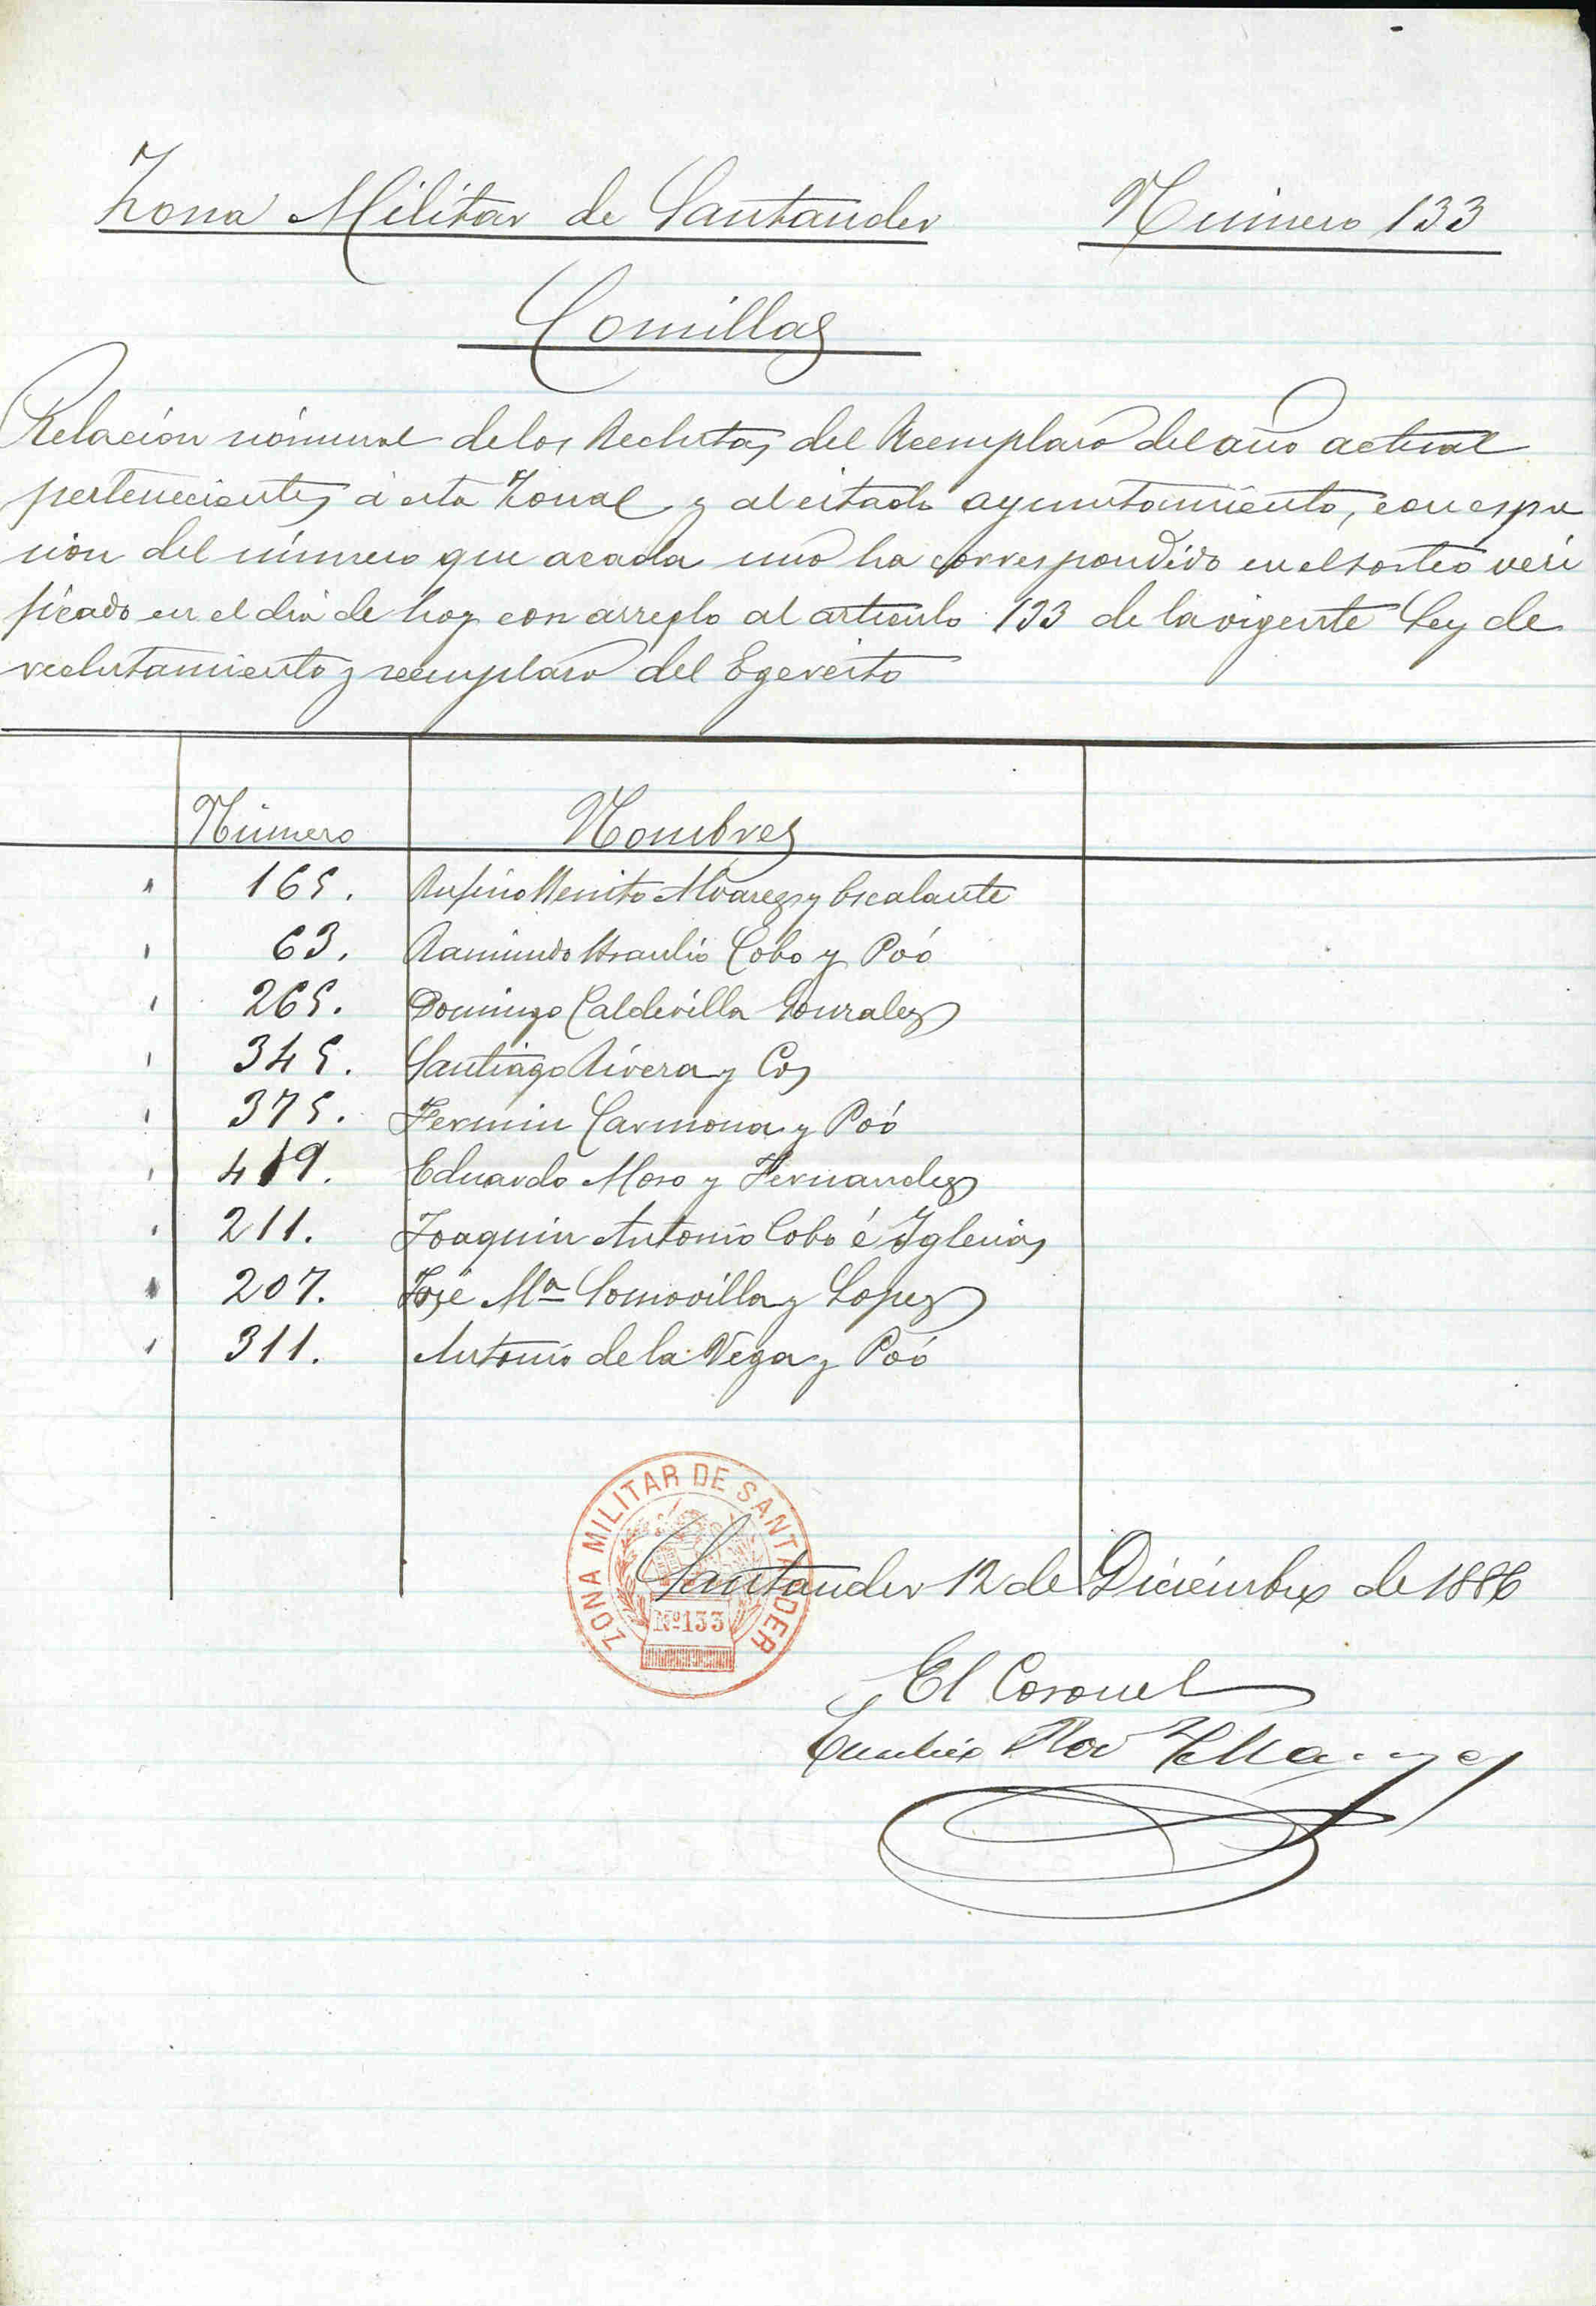 Zona Militar de Santander Número 133
Comillas
Relación nóminal de los Reclutas del Reemplazo del año actual
pertenecientes á esta Zona y al citado ayuntamiento, con espre
sion del número que acada uno ha correspondido en el sorteo veri
ficado en el dia de hoy con arreglo al articulo 133 de la vigente Ley de
reclutamiento y reemplazo del Egercito
Número Nombres
165. Rufino Benito Alvarez y Escalante
63. Raimundo Braulio Cobo y Poó
265. Domingo Caldevilla Gonzalez
345. Santiago Rivera y Cos
375. Fermin Carmona y Poó
419. Eduardo Moro y Fernandez
211. Joaquin Antonio Cobo é Iglesias
207. José Mª Somovilla y Lopez
311. Antonio de la Vega y Poó
ZONA MILITAR DE SANTANDER
Nº 133
Santander 12 de Diciembre de 1886
El Coronel